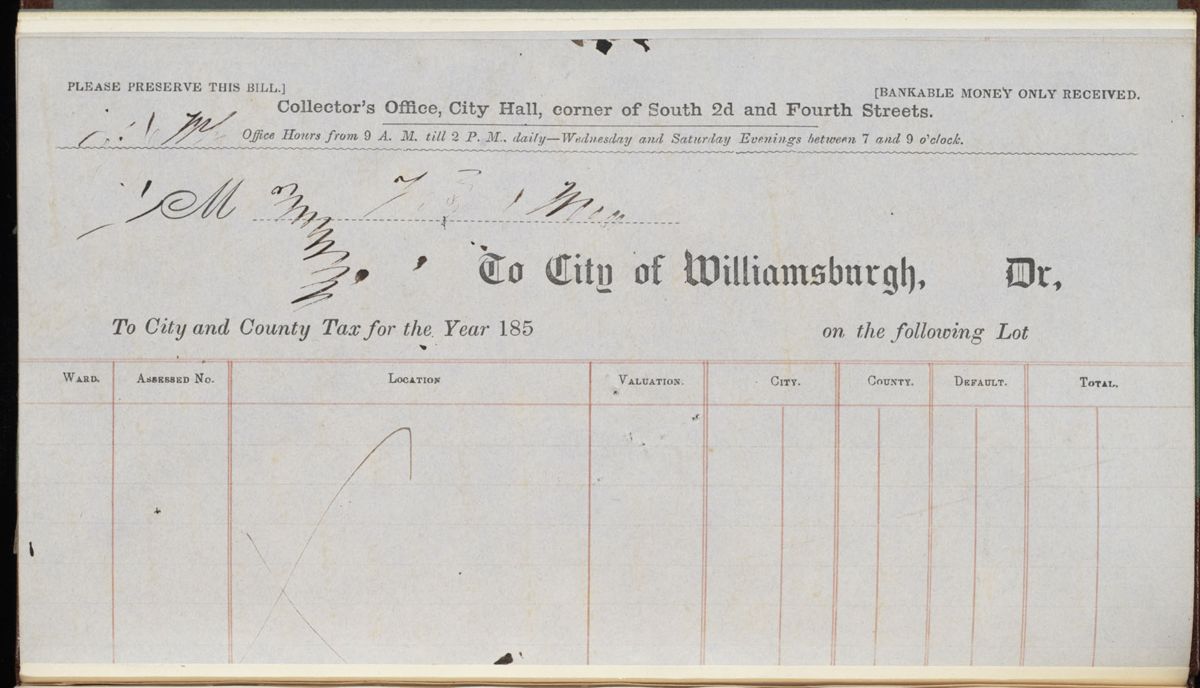 PLEASE PRESERVE THIS BILL.] [BANKABLE MONEY ONLY RECEIVED.
Collector's Office, City Hall, corner of South 2d and Fourth Streets.
Office Hours from 9 A. M. till 2 P. M., daily—Wednesday and Saturday Evenings between 7 and 9 o'clock.
M
To City of Williamsburgh, Dr,
To City and County Tax for the Year 185 on the following Lot
WARD. ASSESSED NO. LOCATION VALUATION. CITY. COUNTY. DEFAULT. TOTAL.